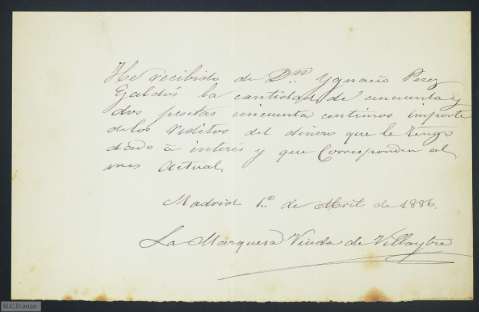 He recibido de Dⁿ Ygnacio Perez
Galdós la cantidad de cincuenta y
dos pesetas cincuenta centimos importe
de los reditos del dinero que le tengo
dado á interés y que corresponden al
mes actual.
Madrid 1º de Abril de 1886.
La Marquesa Viuda de